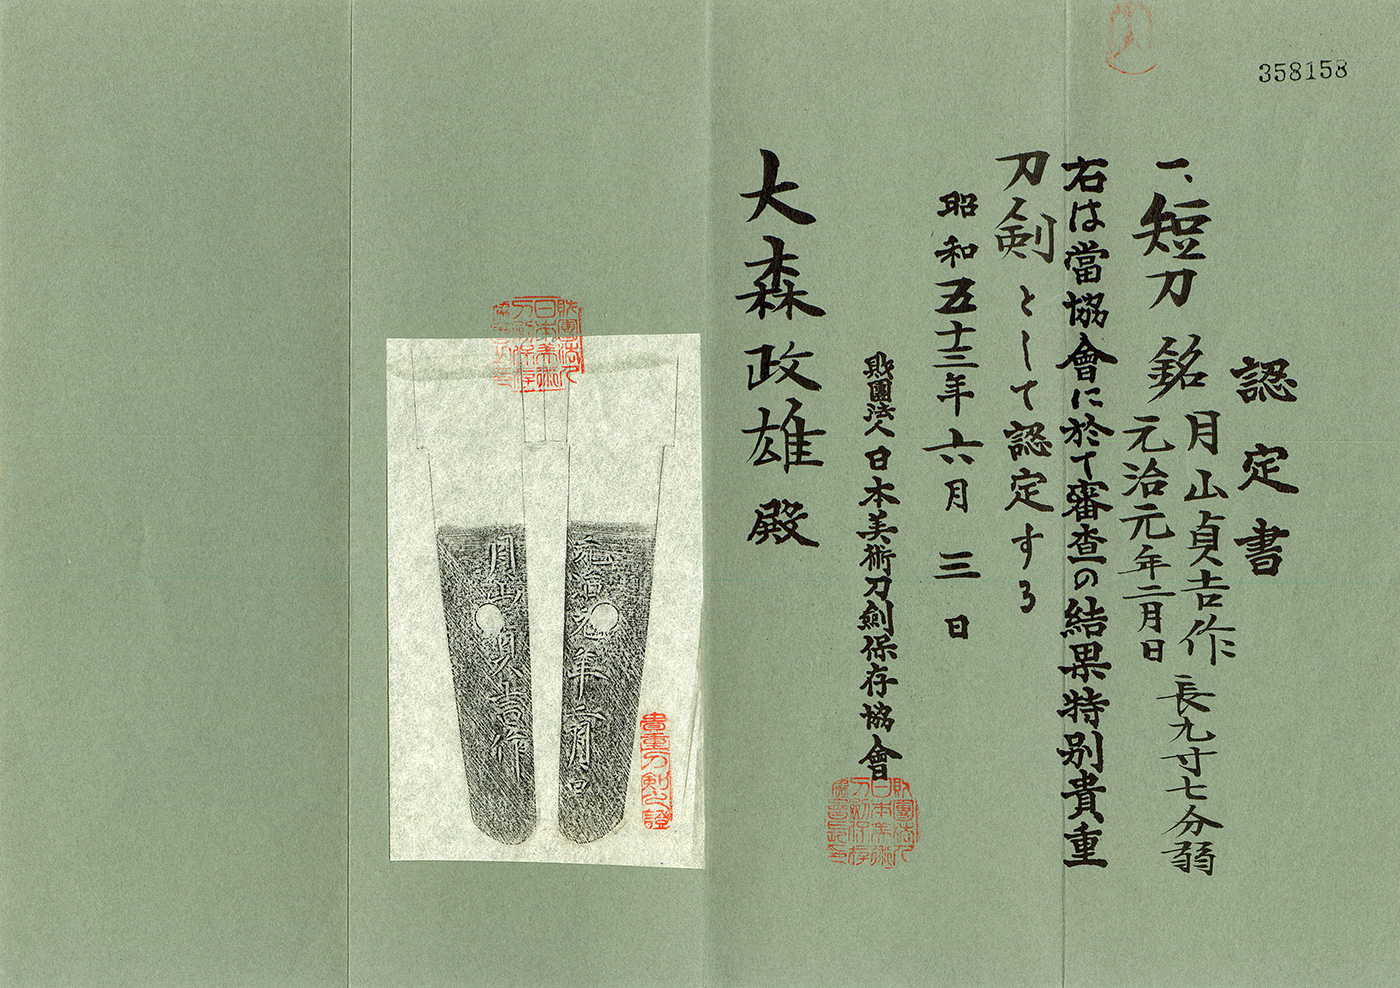 358158
認定書
一、短刀 銘 月山貞吉作 長九寸七分弱
元治元年二月日
右は當協會に於て審査の結果特別貴重
刀剣として認定する
昭和五十三年六月三日
財團法人日本美術刀劍保存協會
財團法人日本美術刀剣保存協會長之印
大森政雄殿
財團法人
日本美術
刀剣保存
元治元年二月日
月山貞吉作
貴重刀剣之證